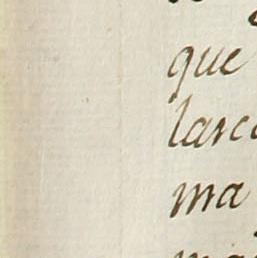 que
larc
ma